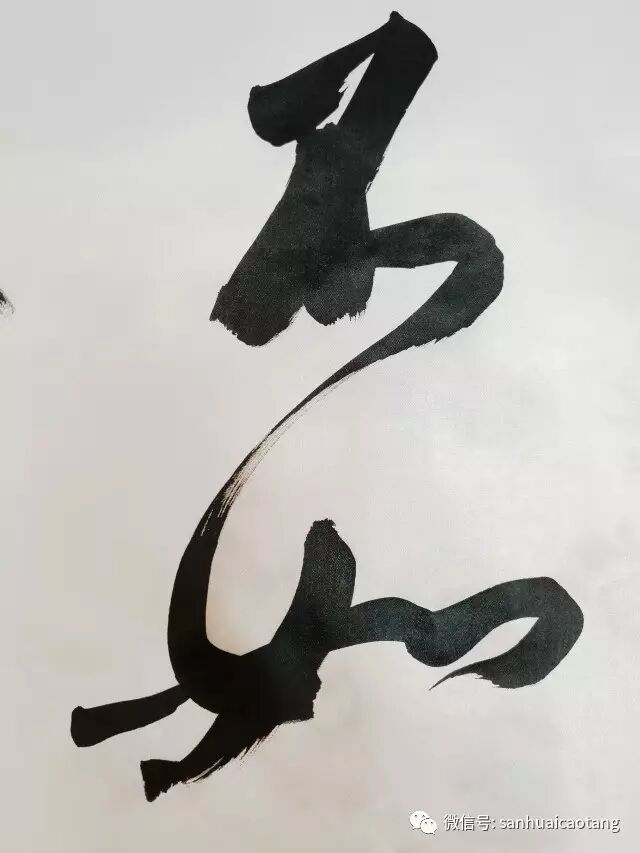 不如
微信号: sanhuaicaotang